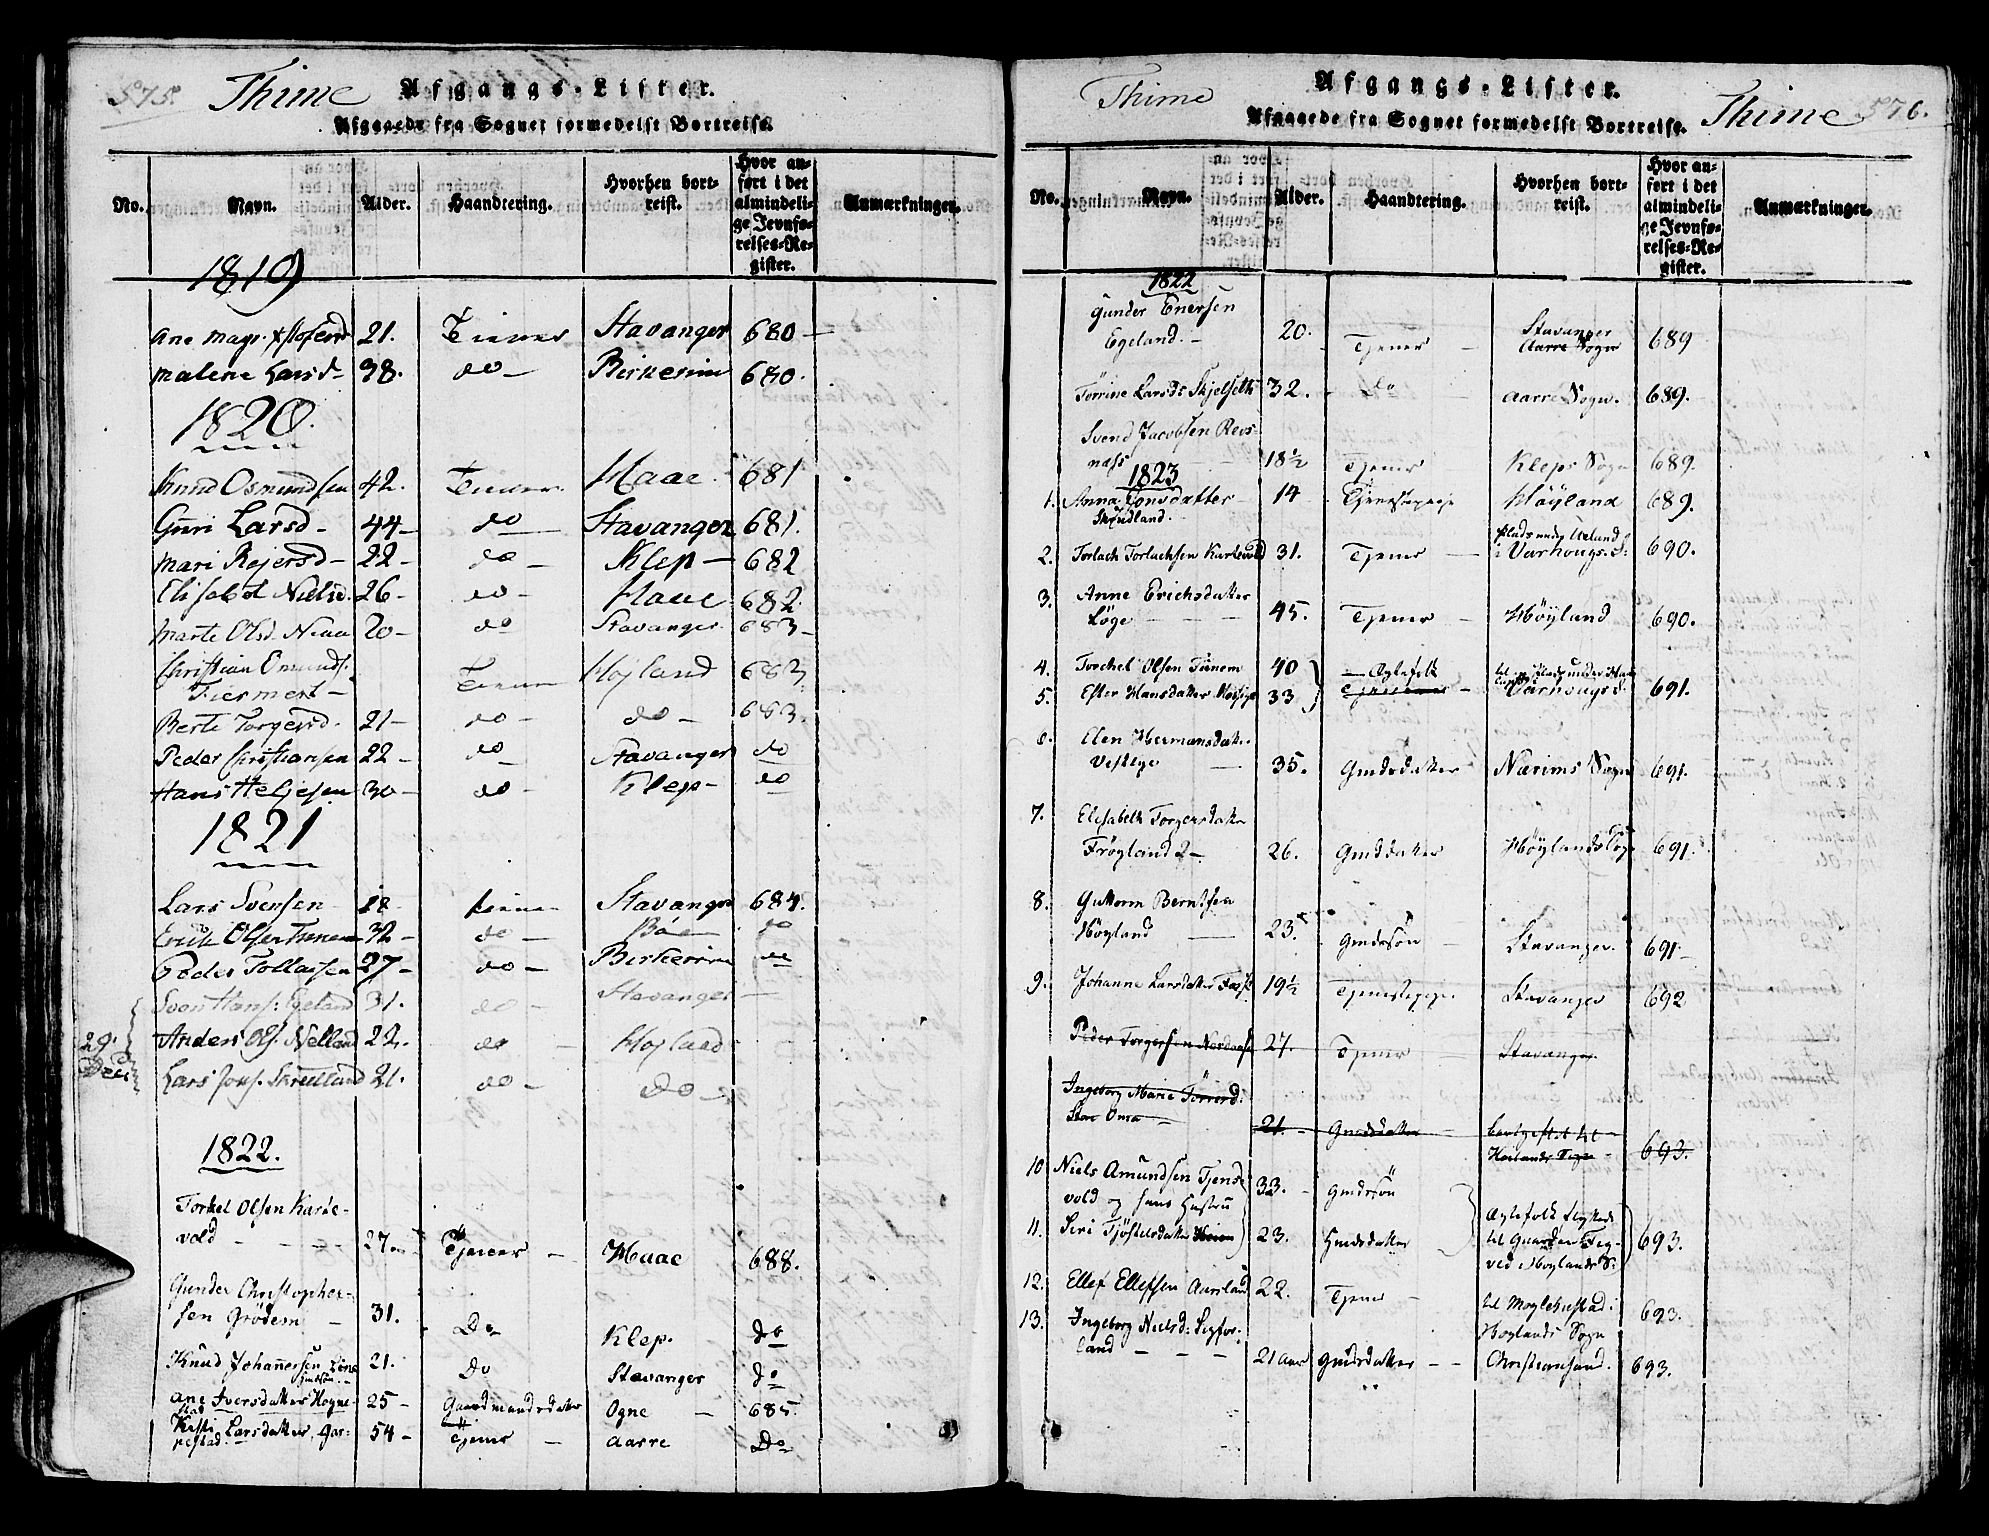 575.
Thime
Afgangs-Lister.
Afgaaede fra Sognet formedelst Bortreise.
No.
Navn.
Alder.
Haandtering.
Hvorhen bort-
reist.
Hvor an-
ført i det
almindeli-
ge Jevnfø-
relses-Re-
gister.
Anmærkninger.
1819
Ane Magr. 21. Tiener Stavanger 680 -
Malene Larsd- 38. do - Birkerim 680.
1820.
Knud Osmundsen 42. Tiener Haae 681
Guri Larsd - 44 - do - Stavanger 681.
Mari Rejersd - 22 - do - Klep - 682
Elisabet Nielsd. 26 - do - Haae 682
Marte Olsd. 20 - do Stavanger 683 -
Christian Omunds.
Tiermest - Tiener Højland 683
Berte Torgersd. 21 - do - do - 683.
Peder Christiansen 22 - do Stavanger do
Hans Heljesen 30 - do - Klep - do
1821
Lars Svensen 18 - tiener Stavanger 684.
Erik Olsen Tunem 32 - do - Bøe do
Peder Tollacsen 27 - do - Birkerim do
Sven Hans: Egeland 31. do Stavanger -
29. Anders Ols. Nelland 22. do - Højland
Dec. Lars Jons. Skrudland 21. do - Do -
1822.
Torkel Olsen Karte-
vold - - - - 27 Tjener - Haae 688.
Gunder Christopher-
sen Grødem - 31. Do Klep. do
Knud Johannesen Line 21. Do Stavanger do
Gmdsøn
Ane Iversdatter Hogne- 25 - Gaardmandsdatter Ogne - 685.
stad
Kisti Larsdatter, Gar- 54 - Tjener - Aarre Do
pestad.
Thime
Afgangs-Lister.
Afgaaede fra Sognet formedelst Bortreise.
Thime 576.
No.
Navn.
Alder.
Haandtering.
Hvorhen bort-
reist.
Hvor an-
ført i det
almindeli-
ge Jevnfø-
relses-Re-
gister.
Anmærkninger.
1822
Gunder Enersen
Egeland. - 20. Tjener - Stavanger
Aarre Sogn 689
Torrine Larsd: Skjelseth 32. - Do - Aarre Sogn. 689.
Svend Jacobsen Revs-
næss 18½ Tjener Kleps Sogn 689.
1823
1. Anna Jonsdatter 14 - Tjenestepige Höyland 689.
Skrudland.
2. Torlach Torlachsen Kartevold 31. Tjener - Plads under Ueland
i Varhougs S: 690.
3. Anne Erichsdatter
Löge - - - 45. Tjener - Höyland 690.
4. Torchel Olsen Tunem 40 - Ægtefolk til Plads under
5. Ester Hansdatter 33 Tjenere - Varhougs S. 691.
6. Elen Hermansdatter
Vestlye - 35. Gmdsdatter Nærims Sogn 691.
7. Elisabeth Torgersdatter
Fröyland 2 - 26. Gmdsdatter Höylands Sogn 691.
8. Guttorm Berntsen
Höyland - 23. Gmdssön Stavanger. 691 -
9. Johanne Larsdatter 19½ Tjenestepige Stavanger 692
Peder Torgersen 27. Tjener - Stavanger
Ingeborg Marie Torrisd:
Store Oma - 21. - Gmdsdatter - bortgiftet til
Højlands Sogn - 693.
10 Niels Amundsen Tjens-
vold og hans Hustru 33. - Gmdssön
Ægtefolk flyttede
11. Seri Tjöstelsdatter 23. Gmdsdatter til Gaarden Teg-
ved i Höylands S: 693.
12. Ellef Ellefsen Aarsland 22. Tjener - til
Høylands Sogn 693.
13. Ingeborg Nielsd: Sigfor-
land - - - 21 Aar Gmdsdatter - - Christiansand. 693.